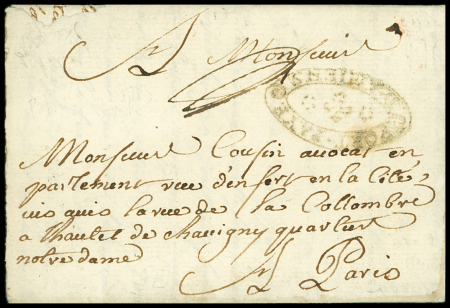 A Monsieur
Monsieur Cousin avocat en
parlement rue d'enfert en la Cité,
vis avis la rue de la Collombe
a lhautel de chavigny quartier
notre dame
A Paris